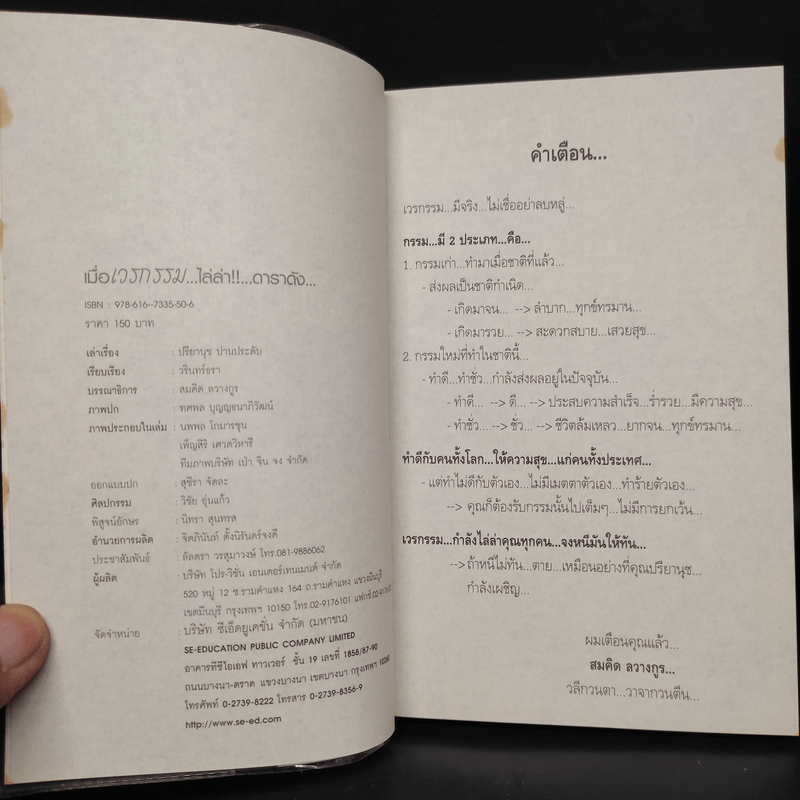 เมื่อเวรกรรม...ไล่ล่า!!...ดาราดัง...
ISBN : 978-616-7335-50-6
ราคา 150 บาท
เล่าเรื่อง : ปรียานุช ปานประดับ
เรียบเรียง : วรินทร์ธรา
บรรณาธิการ : สมคิด ลวางกูร
ภาพปก : ทศพล บุญญธนาภิวัฒน์
ภาพประกอบในเล่ม : นพพล โกมารชุน
เพ็ญสิริ เศวตวิหารี
ทีมภาพบริษัท เป่า จิน จง จำกัด
ออกแบบปก : สุชิรา จัดละ
ศิลปกรรม : วิชัย อุ่นแก้ว
พิสูจน์อักษร : นิทรา สุนทรส
อำนวยการผลิต : จิตภินันท์ ตั้งนิรันดร์จงดี
ประชาสัมพันธ์ : ลัลตรา วรสุมาวงษ์ โทร.081-9886062
ผู้ผลิต : บริษัท โปร-วิชั่น เอนเตอร์เทนเมนต์ จำกัด
520 หมู่ 12 ซ.รามคำแหง 164 ถ.รามคำแหง แขวงมีนบุรี
เขตมีนบุรี กรุงเทพฯ 10150 โทร.02-9176101 แฟกซ์.
จัดจำหน่าย : บริษัท ซีเอ็ดยูเคชั่น จำกัด (มหาชน)
SE-EDUCATION PUBLIC COMPANY LIMITED
อาคารทีซีไอเอฟ ทาวเวอร์ ชั้น 19 เลขที่ 1858/87-90
ถนนบางนา-ตราด แขวงบางนา เขตบางนา กรุงเทพฯ 10260
โทรศัพท์ 0-2739-8222 โทรสาร 0-2739-8356-9
http://www.se-ed.com
คำเตือน...
เวรกรรม...มีจริง...ไม่เชื่ออย่าลบหลู่...
กรรม...มี 2 ประเภท...คือ...
1. กรรมเก่า...ทำมาเมื่อชาติที่แล้ว...
- ส่งผลเป็นชาติกำเนิด...
- เกิดมาจน... --> ลำบาก...ทุกข์ทรมาน...
- เกิดมารวย... --> สะดวกสบาย...เสวยสุข...
2. กรรมใหม่ที่ทำในชาตินี้...
- ทำดี...ทำชั่ว...กำลังส่งผลอยู่ในปัจจุบัน...
- ทำดี... --> ดี... --> ประสบความสำเร็จ...ร่ำรวย...มีความสุข...
- ทำชั่ว... --> ชั่ว... --> ชีวิตล้มเหลว...ยากจน...ทุกข์ทรมาน...
ทำดีกับคนทั้งโลก...ให้ความสุข...แก่คนทั้งประเทศ...
- แต่ทำไม่ดีกับตัวเอง...ไม่มีเมตตาตัวเอง...ทำร้ายตัวเอง...
--> คุณก็ต้องรับกรรมนั้นไปเต็มๆ...ไม่มีการยกเว้น...
เวรกรรม...กำลังไล่ล่าคุณทุกคน...จงหนีมันให้ทัน...
--> ถ้าหนีไม่ทัน...ตาย...เหมือนอย่างที่คุณปรียานุช...
กำลังเผชิญ...
ผมเตือนคุณแล้ว...
สมคิด ลวางกูร...
วลีกวนตา...วาจากวนตีน...